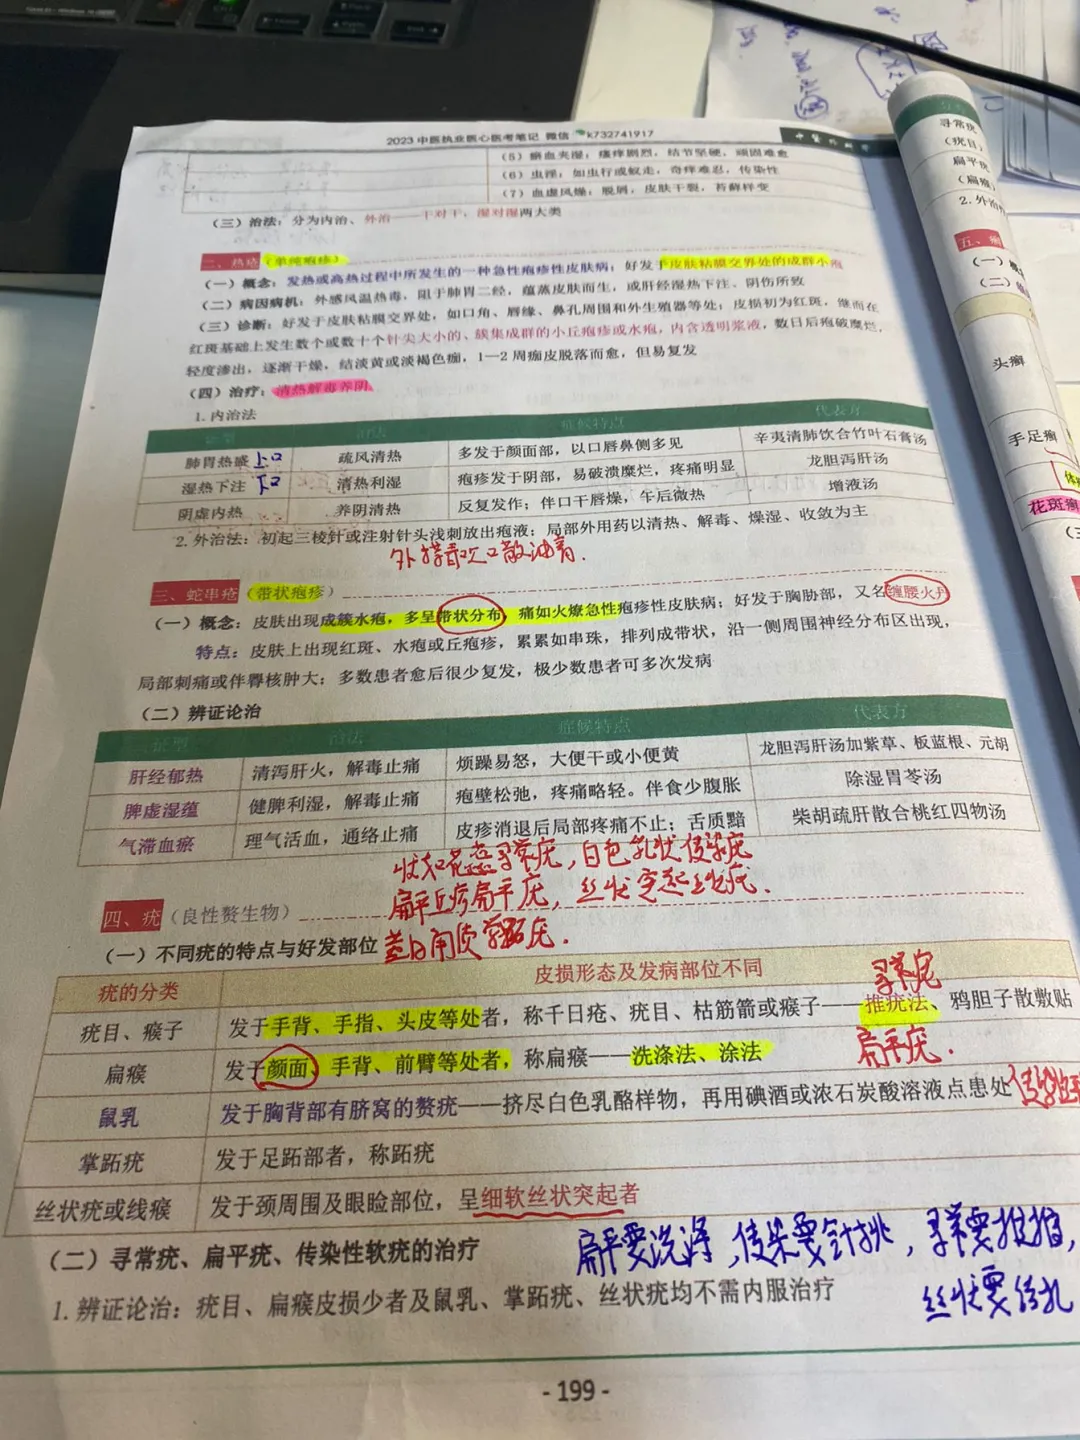 2023 中医执业医心医考笔记 微信 k732741917
中医外科学
（5）瘀血夹湿：瘙痒剧烈，结节坚硬，顽固难愈
（6）虫淫：如虫行或蚁走，奇痒难忍，传染性
（7）血虚风燥：脱屑，皮肤干裂，苔藓样变
（三）治法：分为内治、外治——干对干，湿对湿两大类
二、热疮（单纯疱疹）
（一）概念：发热或高热过程中所发生的一种急性疱疹性皮肤病；好发于皮肤粘膜交界处的成群小疱
（二）病因病机：外感风温热毒，阻于肺胃二经，蕴蒸皮肤而生，或肝经湿热下注、阴伤所致
（三）诊断：好发于皮肤粘膜交界处，如口角、唇缘、鼻孔周围和外生殖器等处；皮损初为红斑，继而在
红斑基础上发生数个或数十个针尖大小的、簇集成群的小丘疱疹或水疱，内含透明浆液，数日后疱破糜烂，
轻度渗出，逐渐干燥，结淡黄或淡褐色痂，1—2 周痂皮脱落而愈，但易复发
（四）治疗：清热解毒养阴
1. 内治法
证型 治法 症候特点 代表方
肺胃热盛 上口 疏风清热 多发于颜面部，以口唇鼻侧多见 辛夷清肺饮合竹叶石膏汤
湿热下注 下口 清热利湿 疱疹发于阴部，易破溃糜烂，疼痛明显 龙胆泻肝汤
阴虚内热 养阴清热 反复发作；伴口干唇燥，午后微热 增液汤
2. 外治法：初起三棱针或注射针头浅刺放出疱液；局部外用药以清热、解毒、燥湿、收敛为主
外搽青吹口散油膏.
三、蛇串疮（带状疱疹）
（一）概念：皮肤出现成簇水疱，多呈带状分布，痛如火燎急性疱疹性皮肤病；好发于胸胁部，又名缠腰火丹
特点：皮肤上出现红斑、水疱或丘疱疹，累累如串珠，排列成带状，沿一侧周围神经分布区出现，
局部刺痛或伴臀核肿大；多数患者愈后很少复发，极少数患者可多次发病
（二）辨证论治
证型 治法 症候特点 代表方
肝经郁热 清泻肝火，解毒止痛 烦躁易怒，大便干或小便黄 龙胆泻肝汤加紫草、板蓝根、元胡
脾虚湿蕴 健脾利湿，解毒止痛 疱壁松弛，疼痛略轻。伴食少腹胀 除湿胃苓汤
气滞血瘀 理气活血，通络止痛 皮疹消退后局部疼痛不止；舌质黯 柴胡疏肝散合桃红四物汤
状如花蕊寻常疣，白色乳状传染疣
扁平丘疹扁平疣，丝状突起丝状疣.
四、疣（良性赘生物）
（一）不同疣的特点与好发部位
角质掌跖疣.
疣的分类 皮损形态及发病部位不同
寻常疣
疣目、瘊子 发于手背、手指、头皮等处者，称千日疮、疣目、枯筋箭或瘊子——推疣法、鸦胆子散敷贴
扁瘊 发于颜面、手背、前臂等处者，称扁瘊——洗涤法、涂法
扁平疣.
鼠乳 发于胸背部有脐窝的赘疣——挤尽白色乳酪样物，再用碘酒或浓石炭酸溶液点患处
掌跖疣 发于足跖部者，称跖疣
丝状疣或线瘊 发于颈周围及眼睑部位，呈细软丝状突起者
（二）寻常疣、扁平疣、传染性软疣的治疗
扁平要洗涤，传染要针挑，寻常要推疣，
丝状要结扎
1. 辨证论治：疣目、扁瘊皮损少者及鼠乳、掌跖疣、丝状疣均不需内服治疗
- 199 -
寻常疣
（疣目）
扁平疣
（扁瘊）
2. 外治
五、癣
（一）概
（二）
头癣
手足癣
体
花斑癣